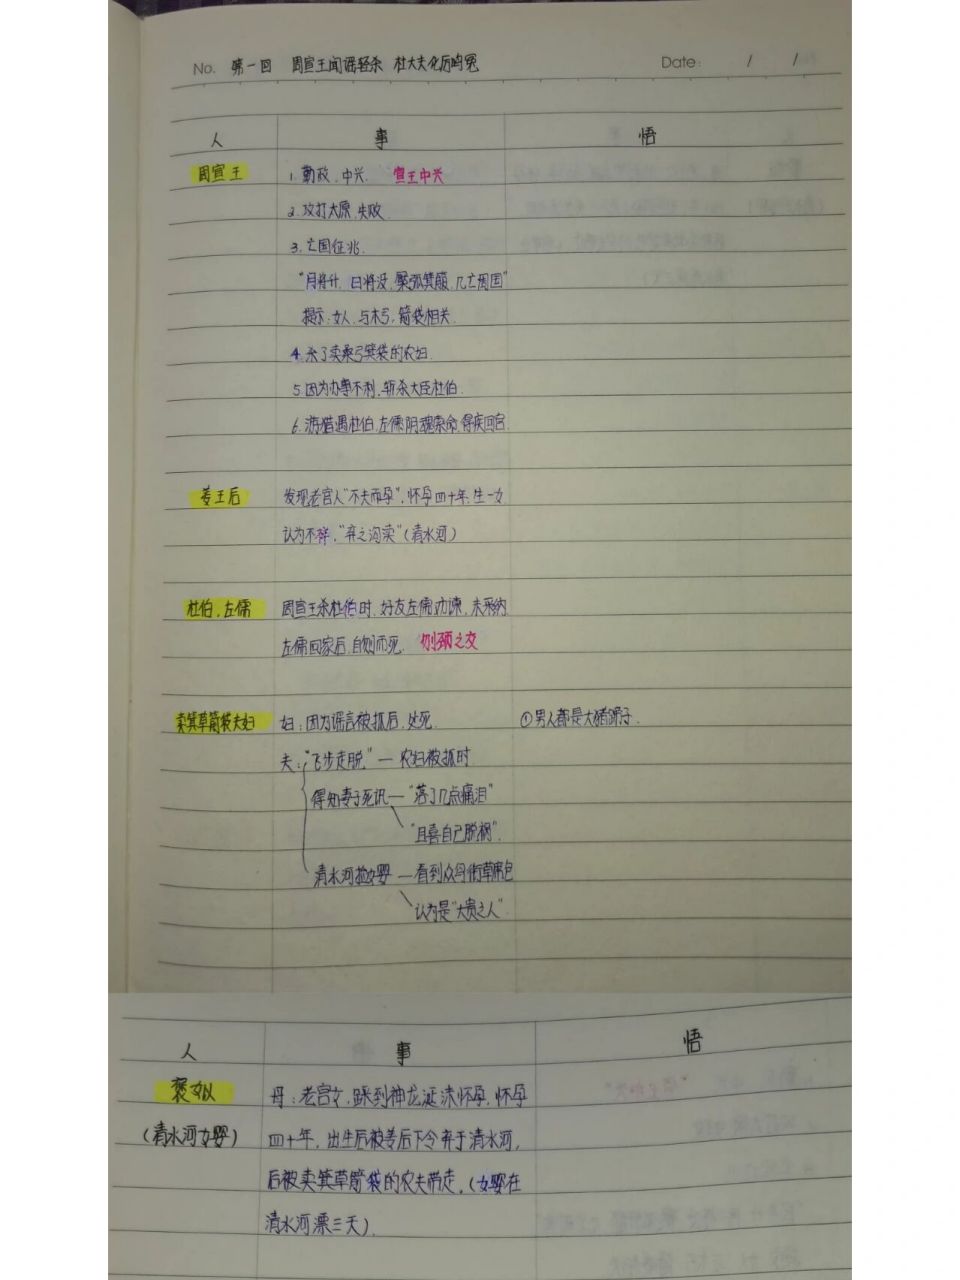 No. 第一回 周宣王闻谣轻杀 杜大夫化厉鸣冤 Date: / /
人 事 悟
周宣王 1. 勤政, 中兴. 宣王中兴
2. 攻打太原, 失败
3. 亡国征兆.
"月将升, 日将没, 檿弧箕箙, 几亡周国"
提示: 女人, 与木弓, 箭袋相关.
4. 杀了卖桑弓箕袋的农妇.
5. 因为办事不利, 斩杀大臣杜伯.
6. 游猎遇杜伯, 左儒阴魂索命, 得疾回宫.
姜王后 发现老宫人"不夫而孕", 怀孕四十年, 生一女
认为不祥, "弃之沟渎" (清水河)
杜伯, 左儒 周宣王杀杜伯时, 好友左儒劝谏, 未采纳
左儒回家后, 自刎而死. 刎颈之交
卖箕草箭袋夫妇 妇: 因为谣言被抓后, 处死. ①男人都是大猪蹄子.
夫: "飞步走脱," — 农妇被抓时
得知妻子死讯 — "落了几点痛泪"
"且喜自己脱祸".
清水河捡女婴 — 看到众鸟衔草席包
认为是"大贵之人".
人 事 悟
褒姒 母: 老宫女, 踩到神龙涎沫怀孕, 怀孕
(清水河女婴) 四十年, 出生后被姜后下令弃于清水河,
后被卖箕草箭袋的农夫带走, (女婴在
清水河漂三天).